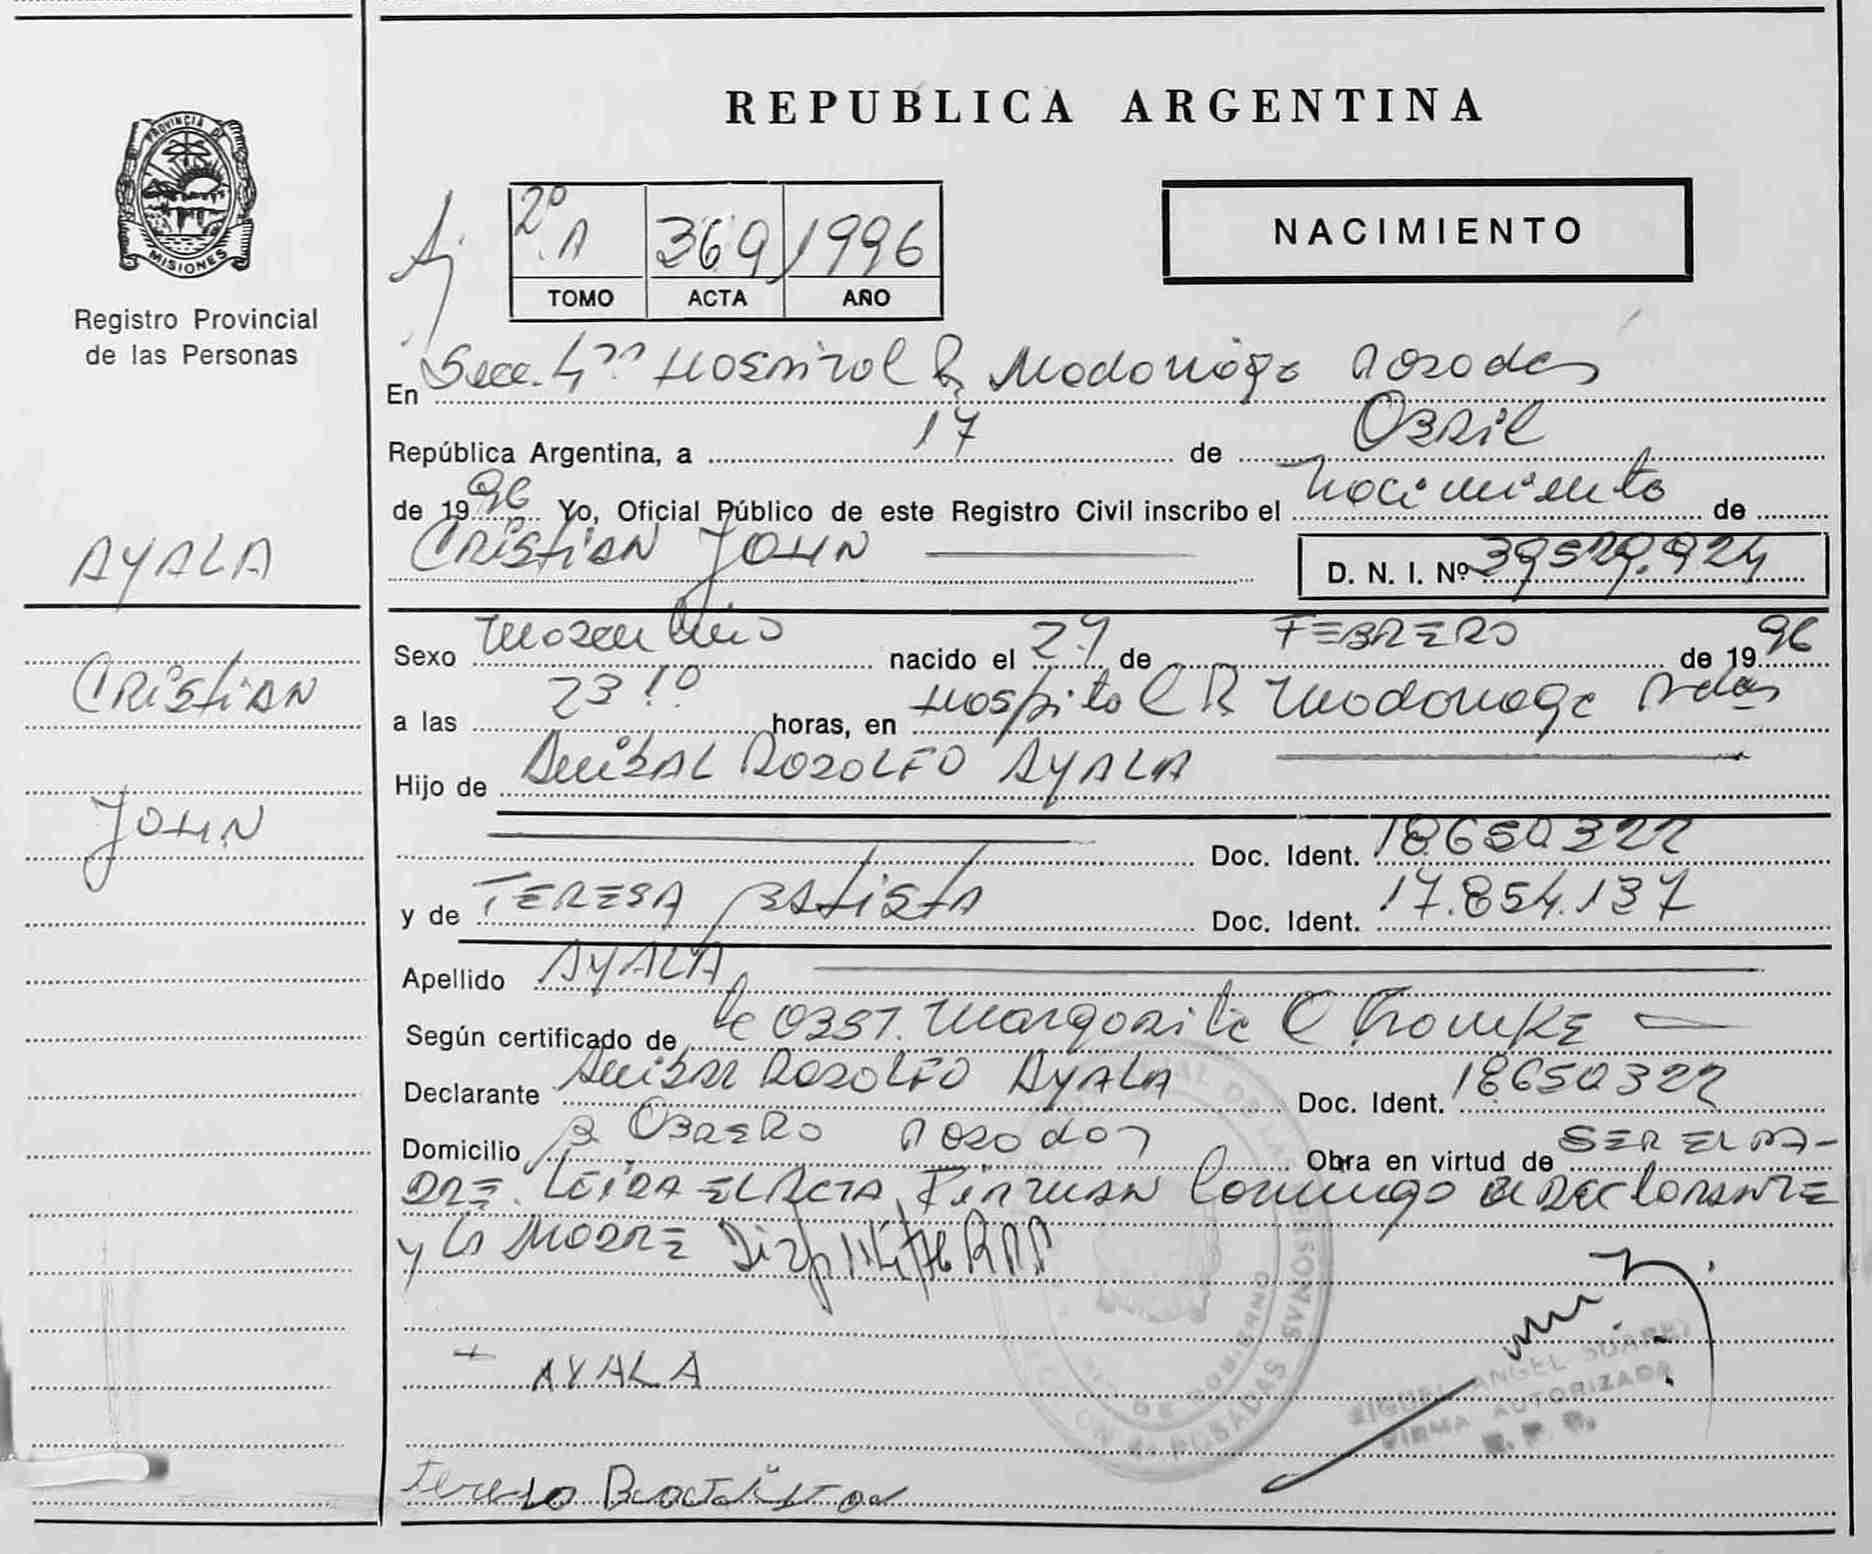 PROVINCIA DE
MISIONES
Registro Provincial
de las Personas
AYALA
CRISTIAN
JOHN
REPUBLICA ARGENTINA
2º A 369 1996
TOMO ACTA AÑO
NACIMIENTO
En Secc. 4ta Hospital R. Madariaga Posadas
República Argentina, a 17 de Abril
de 1996 Yo, Oficial Público de este Registro Civil inscribo el Nacimiento de
CRISTIAN JOHN D. N. I. Nº 39529.924
Sexo Masculino nacido el 29 de FEBRERO de 1996
a las 23 10 horas, en Hospital R Madariaga Pdas
Hijo de Anibal RODOLFO AYALA
Doc. Ident. 18650322
y de TERESA BATISTA Doc. Ident. 17.854.137
Apellido AYALA
Según certificado de la OBST. Margarita
Declarante Anibal RODOLFO AYALA Doc. Ident. 18650322
Domicilio B OBRERO POSADAS Obra en virtud de SER EL PA-
DRE. LEIDA EL ACTA, FIRMAN Conmigo El DECLARANTE
y LA MADRE
AYALA
Teresa Batista
MIGUEL ANGEL SUAREZ
FIRMA AUTORIZADA
R. P. P.